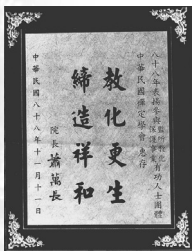 八十八年表揚參與監所教化有功人士團體
中華民國禪定學會惠存
教化更生
締造祥和
院長 蕭萬長
中華民國八十八年十一月十一日